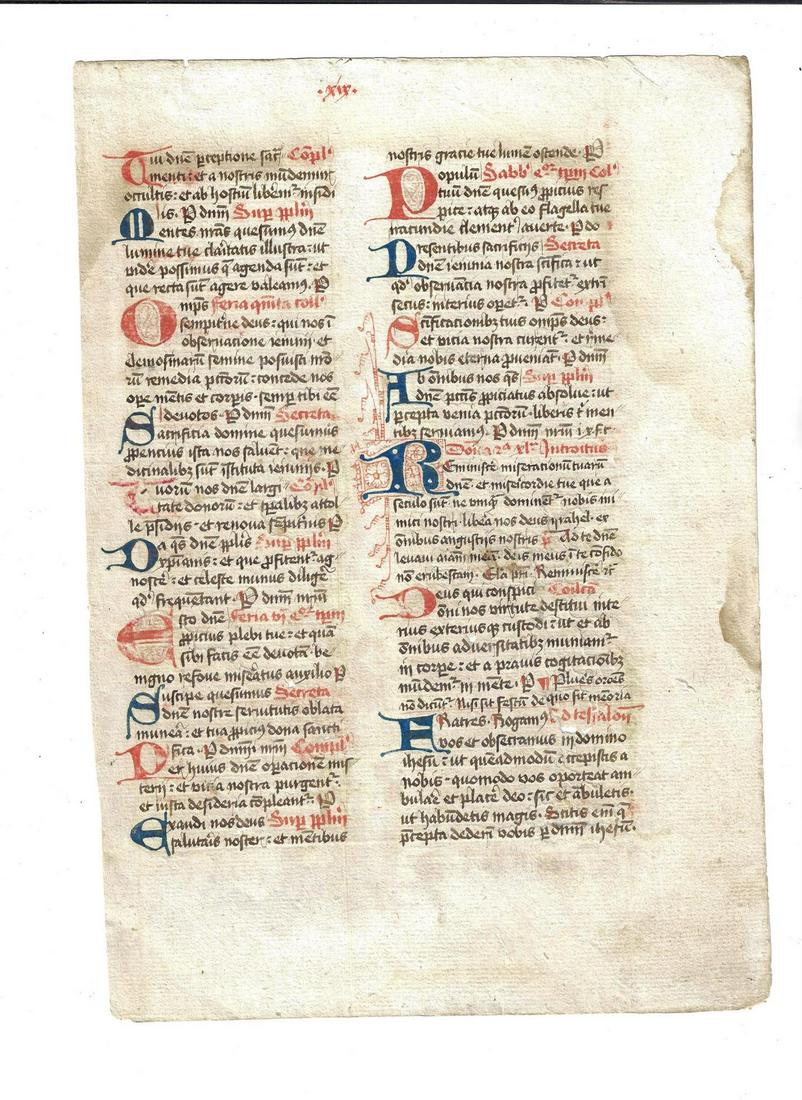 ·xix·
Tui dñe pceptione sac̄ Cōpl'
menti: et a nostris mūdemur
occultis: et ab hostiū liberem̄ insidi
is. P dnm̄ Sup pplm̄
Mentes nr̄as quesumus dñe
lumine tue claritatis illustra: ut
videre possimus q̄ agenda sūt: et
que recta sūt agere valeamus. P
Omps feria quīta coll'
sempit̄ne deus: qui nos ī
observacione ieiunii et
elemosinarū semine posuisti
rū remedia pctorū: concede nos
ope mentis et corpis semp tibi eē
devotos. P dnm̄ Secreta
Sacrificia domine quesumus
ppencius ista nos salvent: que me
dicinalibz sūt īstituta ieiuniis. P
Tuorū nos dñe largi Cōpl'
tate donorū: et tpalibz attol
le psidiis et renova sempit̄nis P
Da q̄s dñe pplis Sup pplm̄
xpianis: et que pfitent̄ ag
noscē: et celeste munus diligē
qd' frequētant. P dnm̄ nrm̄
Esto dñe feria vi
ppicius plebi tue: et quā
tibi facis eē devotā: be
nigno refove miseratus auxilio P
Suscipe quesumus Secreta
dñe nostre servitutis oblata
munera: et tua ppicius dona sancti
fica. P dnm̄ nrm̄ Compl'
Per huius dñe operacionem mis
terii: et vicia nostra purgent̄
et iusta desideria cōpleant̄. P
Exaudi nos deus Sup pplm̄
salutaris noster: et mentibus
nostris gracie tue lumē ostende. P
Populū Sabb'
tuū dñe quesumus ppicius res
pice: atqz ab eo flagella tue
iracundie clement̄ averte. P do
Presentibus sacrificiis Secreta
dñe ieiunia nostra scifica: ut
qd' observātia nostra pfitet̄ extrī
secus: interius operet̄. P Con pl'
Scificacionibz tuis omps deus:
et vicia nostra curent̄: et r̄me
dia nobis eterna pveniāt. P dnm̄
Ab ōnibus nos q̄s Sup pplm̄
dñe pctis ppiciatus absolve: ut
pcepta venia pctorū liberis t̄ men
tibz serviamus. P dnm̄ nrm̄ i.x.f.t.
Introitus
Reminiscē miserationū tuarū
dñe et misericordie tue que a
seculo sūt. ne umqm̄ dominent̄ nobis ini
mici nostri libera nos deus israhel ex
ōnibus angustiis nostris p̄. Ad te dñe
levavi aiam̄ meā: deus meus ī te cōfido
nō erubescam. Gla pri. Reminiscē
Deus qui conspici Collcā
ōni nos virtute destitui inte
rius exteriusqz custodi: ut et ab
ōnibus adversitatibz muniam̄
in corpe: et a pravis cogitacionibz
mūdem̄ in mēte. P ¶ Plures orōes
nō dicūt̄. Nisi sit festū de quo fit mēoria
Fratres. Rogamus
vos et obsecramus in domino
ihesu: ut queadmodū accepistis a
nobis quomodo vos oporteat am
bulare et placē deo: sic et ābuletis.
ut habūdetis magis. Scitis eni q̄
pcepta dederī vobis p dnm̄ ihesū.